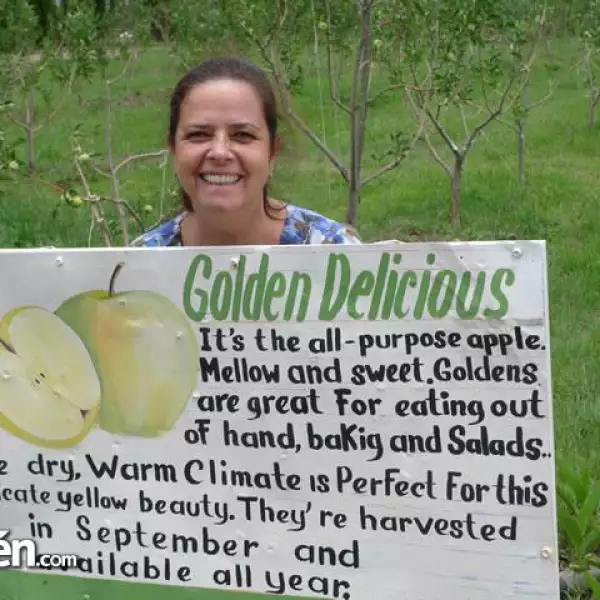 Golden Delicious
It's the all-purpose apple.
Mellow and sweet. Goldens
are great For eating out
oF hand, baKig and Salads..
dry, Warm Climate is PerFect For this
yellow beauty. They're harvested
in September and
all year.
.com